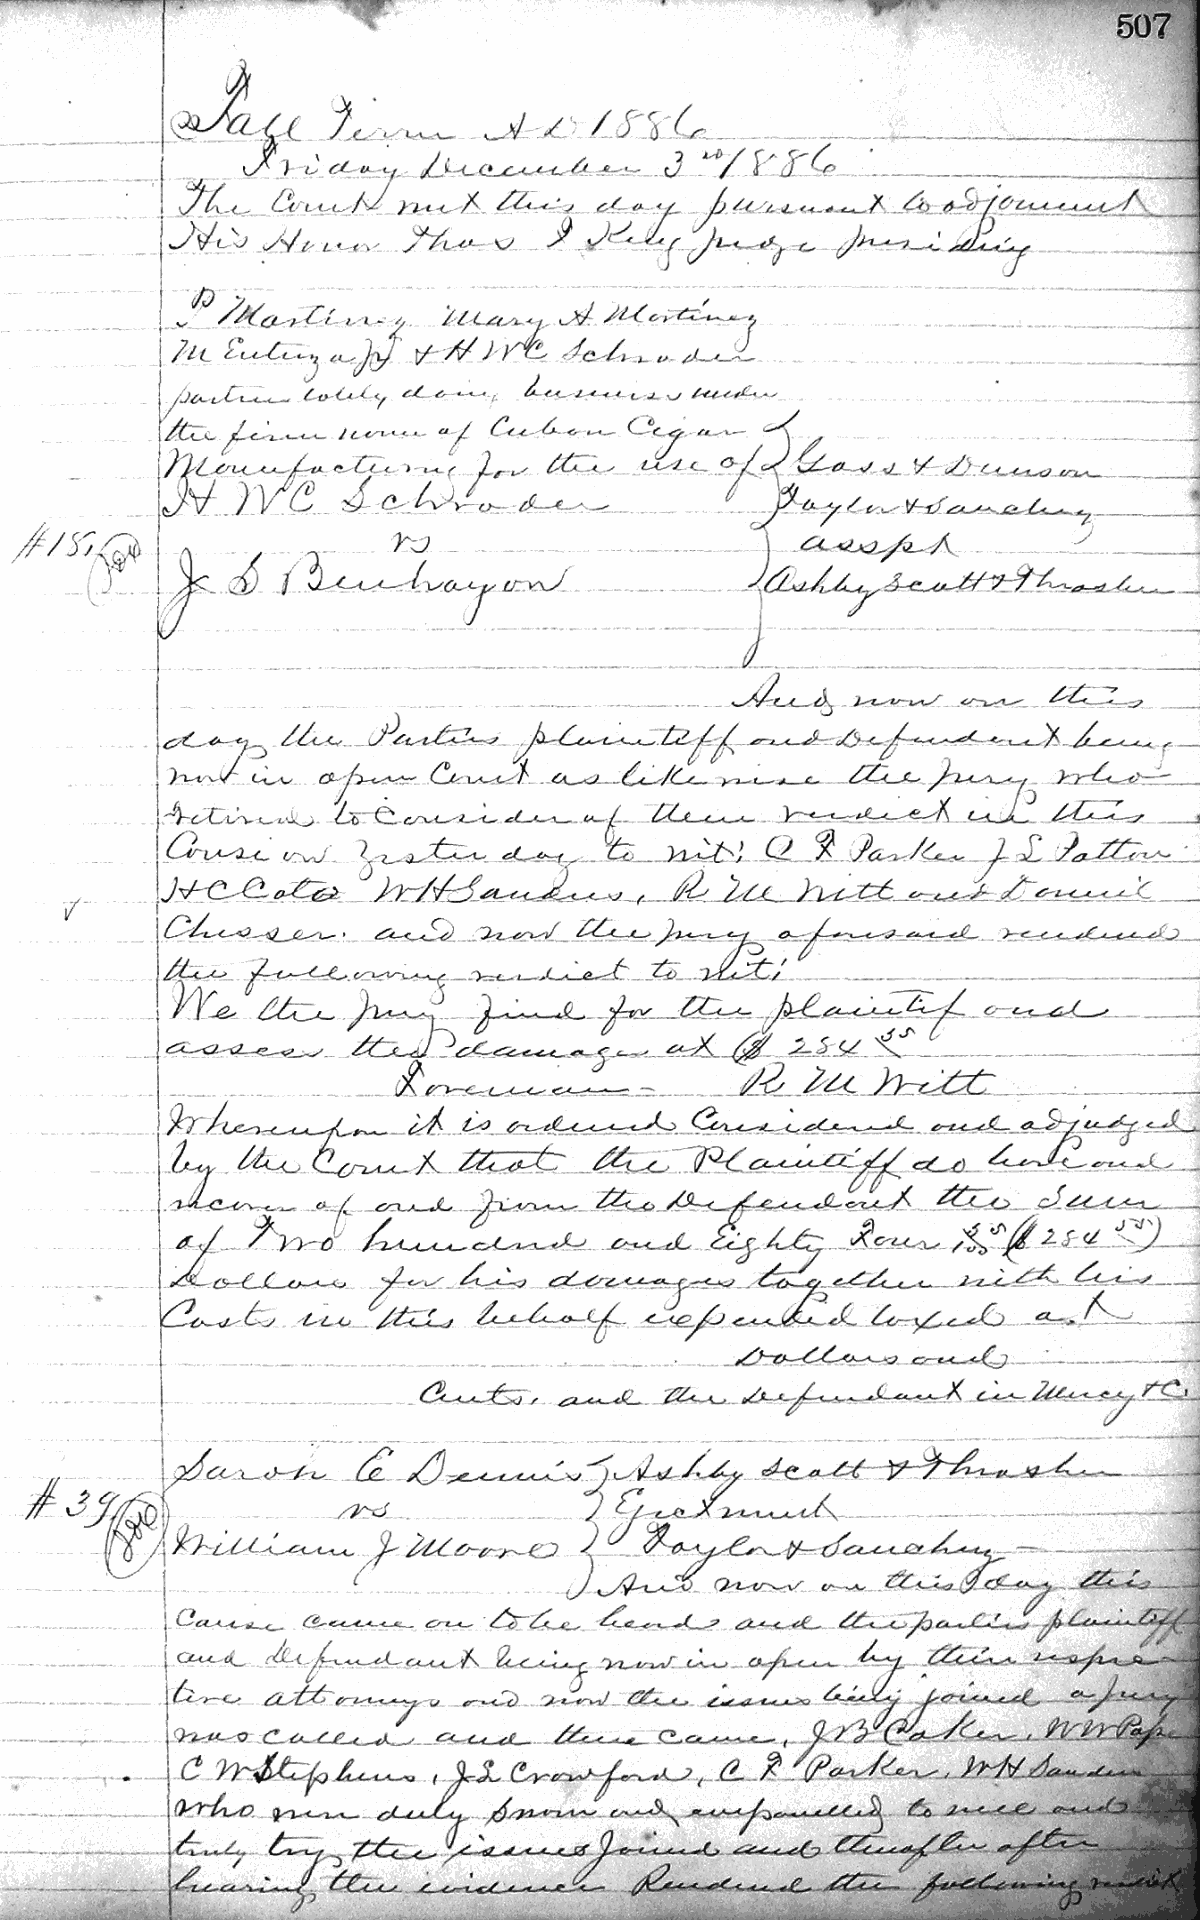 507
Fall Term A D 1886
Friday December 3rd 1886
The Court met this day pursuant to adjournment
His Honor Thos F King judge presiding
P Martinez Mary A Martinez
M Entenza Jr & H W C Schroder
partners lately doing business under
the firm name of Cuban Cigar
Manufacturing for the use of Goss & Dunson
H W C Schroder Taylor & Sanchez
vs asspt
#15
J S Benhayon Ashby Scott & Thrasher
And now on this
day the Parties plaintiff and Defendant being
now in open Court as likewise the jury who
retired to Consider of their verdict in this
Cause on Yesterday to wit: C F Parker J L Patton
H C Cato W H Sanders, R M Witt and Daniel
Chesser. and now the jury aforesaid rendered
the following verdict to wit:
We the jury find for the plaintif and
assess the damages at $ 284 55
Foreman R M Witt
Whereupon it is ordered Considered and adjudged
by the Court that the Plaintiff do have and
recover of and from the Defendant the Sum
of Two hundred and Eighty Four 55/100 ($ 284 55)
Dollars for his damages together with his
Costs in this behalf expended taxed at
Dollars and
Cents, and the Defendant in Mercy &C.
Sarah E Dennis Ashby Scott & Thrasher
#39 vs Ejectment
William J Moore Taylor & Sanchez
And now on this day this
Cause came on to be heard and the parties plaintiff
and Defendant being now in open by their respec
tive attorneys and now the issues being joined a jury
was called and there came, J B Coker, W W Pope
C W Stephens, J L Crawford, C F Parker, W H Sanders
who were duly sworn and empanelled to well and
truly try the issues Joined and thereafter after
hearing the evidence Rendered the following verdict